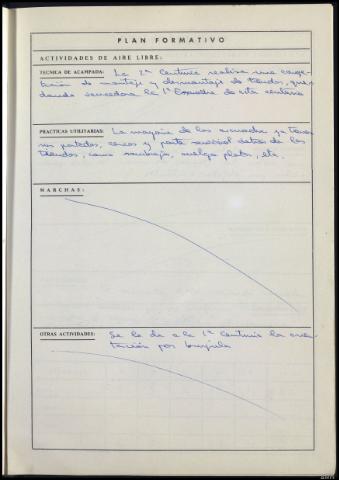 PLAN FORMATIVO
ACTIVIDADES DE AIRE LIBRE:
TECNICA DE ACAMPADA: La 2ª Centuria realiza una compe-
tición de montaje y desmontaje de tiendas, que-
dando vencedora la 1ª Escuadra de esta centuria
PRACTICAS UTILITARIAS: La mayoria de las escuadras ya tienen
sus portales, cercos y parte detras de las
tiendas, como cuelga platos, etc.
MARCHAS:
OTRAS ACTIVIDADES: Se le da a la 1ª Centuria la orien-
tación por brujula